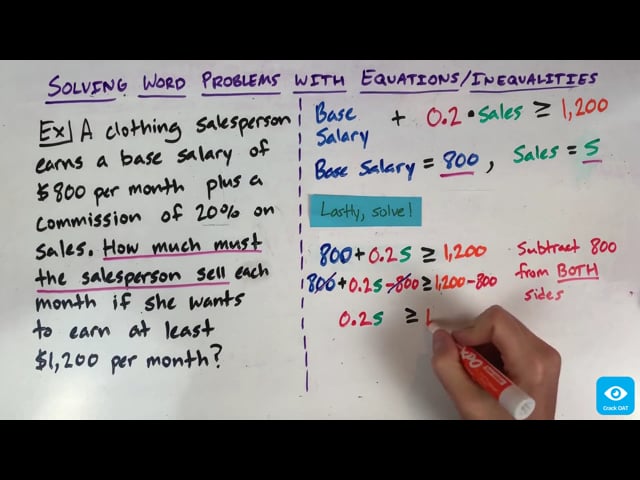 SOLVING WORD PROBLEMS WITH EQUATIONS/INEQUALITIES
Ex) A clothing salesperson
earns a base salary of
$800 per month plus a
commission of 20% on
sales. How much must
the salesperson sell each
month if she wants
to earn at least
$1,200 per month?
Base Salary + 0.2 • Sales ≥ 1,200
Base Salary = 800, Sales = S
Lastly, solve!
800 + 0.2s ≥ 1,200
800 + 0.2s - 800 ≥ 1,200 - 800
Subtract 800
from BOTH
sides
0.2s ≥
Crack OAT